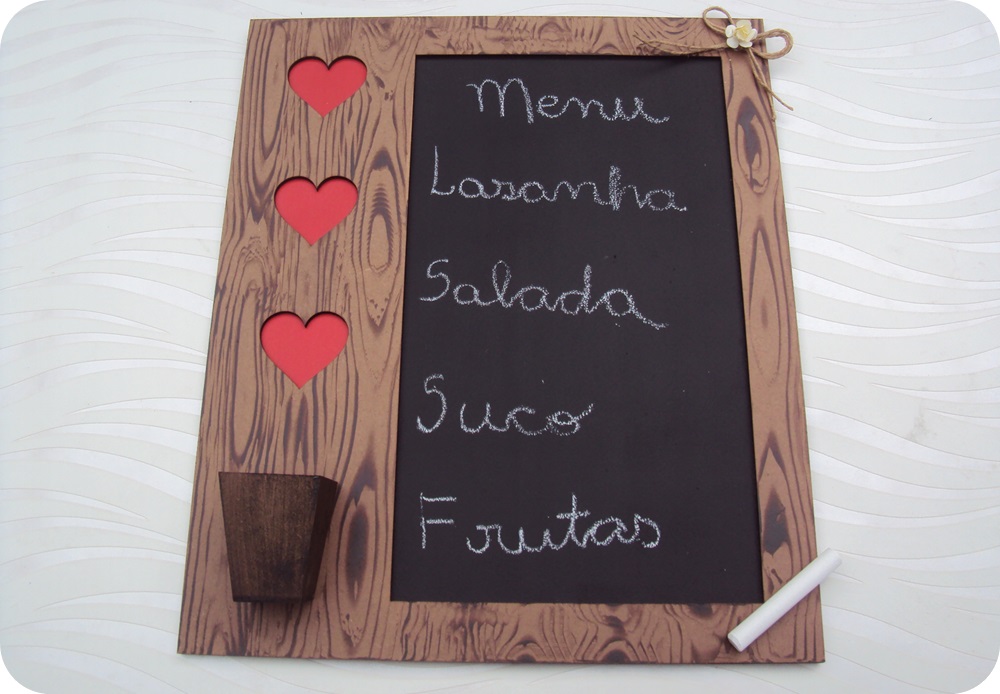 Menu
Lasanha
Salada
Suco
Frutas